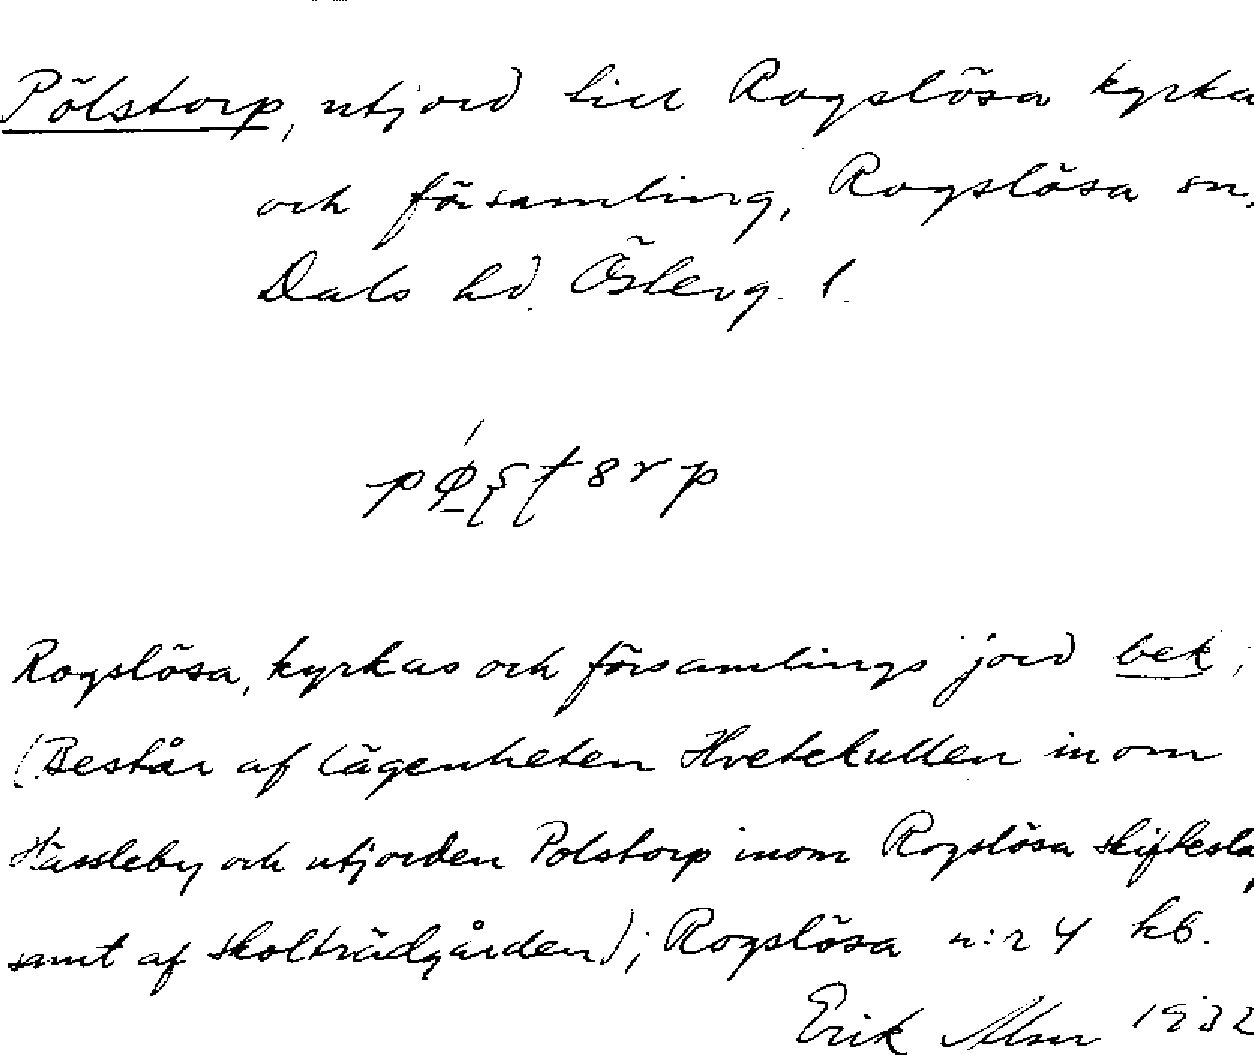 Pölstorp, utjord till Rogslösa kyrka
och församling, Rogslösa sn,
Dals hd. Österg. l.
Rogslösa, kyrkas och församlings jord bek;
(Består af lägenheten Hvetekullen inom
Hässleby och utjorden Polstorp inom Rogslösa skifesla
samt af skolträdgården); Rogslösa n:r 4 hb.
Erik 1932